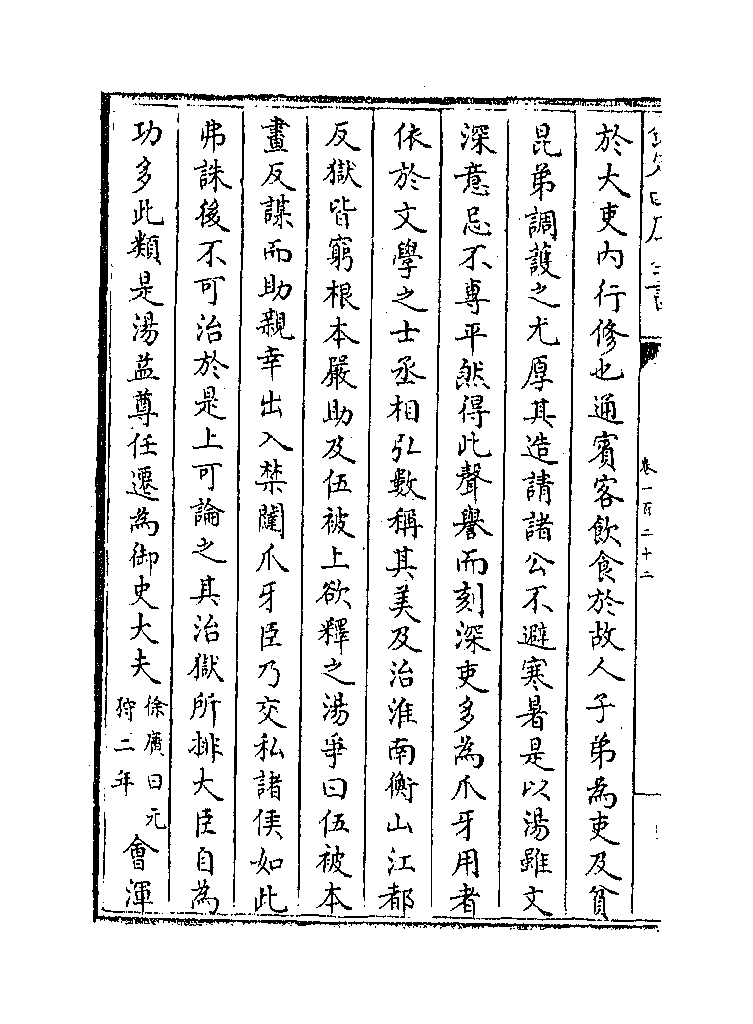 卷一百二十二
於大吏内行修也通賓客飲食於故人子弟為吏及貧
昆弟調護之尤厚其造請諸公不避寒暑是以湯雖文
深意忌不專平然得此聲譽而刻深吏多為爪牙用者
依於文學之士丞相弘數稱其美及治淮南衡山江都
反獄皆窮根本嚴助及伍被上欲釋之湯爭曰伍被本
畫反謀而助親幸出入禁闥爪牙臣乃交私諸侯如此
弗誅後不可治於是上可論之其治獄所排大臣自為
功多此類是湯益尊任遷為御史大夫徐廣曰元狩二年會渾